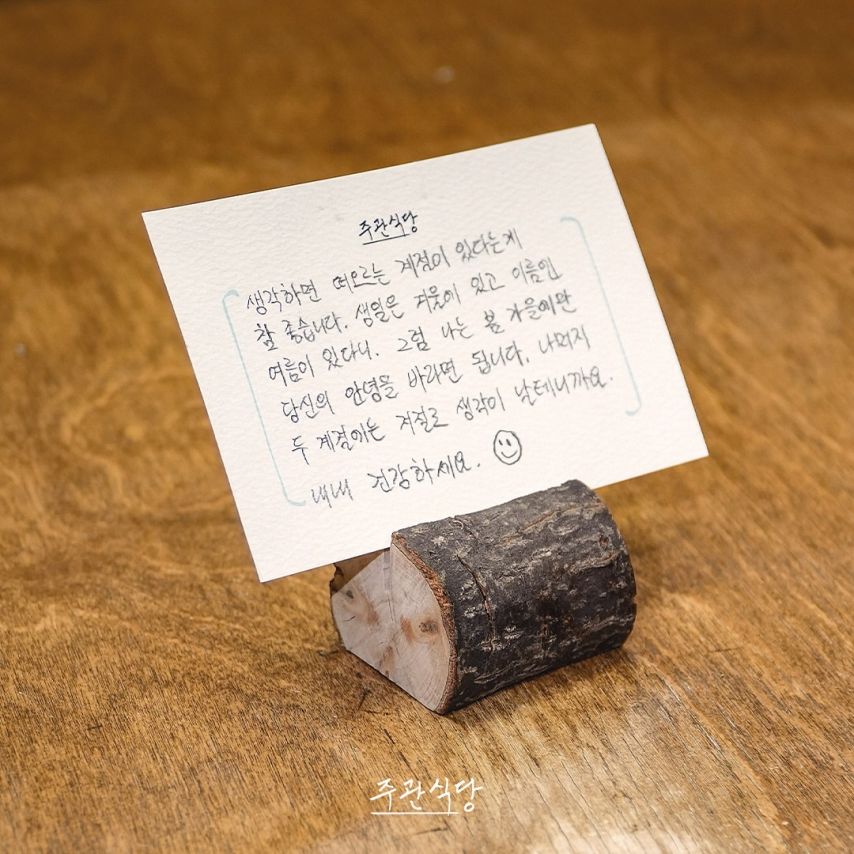 주관식당
생각하면 떠오르는 계절이 있다는게
참 좋습니다. 생일은 겨울에 있고 이름엔
여름이 있다니. 그럼 나는 봄 가을에만
당신의 안녕을 바라면 됩니다. 나머지
두 계절에는 저절로 생각이 날테니까요.
내내 건강하세요.
주관식당